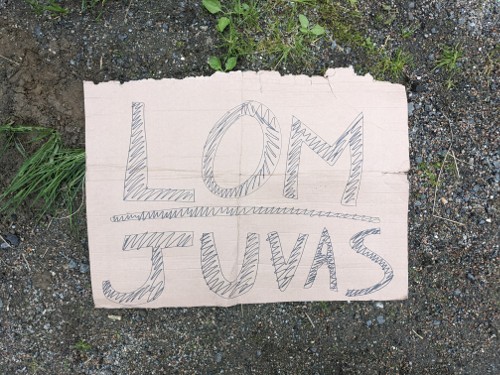 LOM
JUVAS